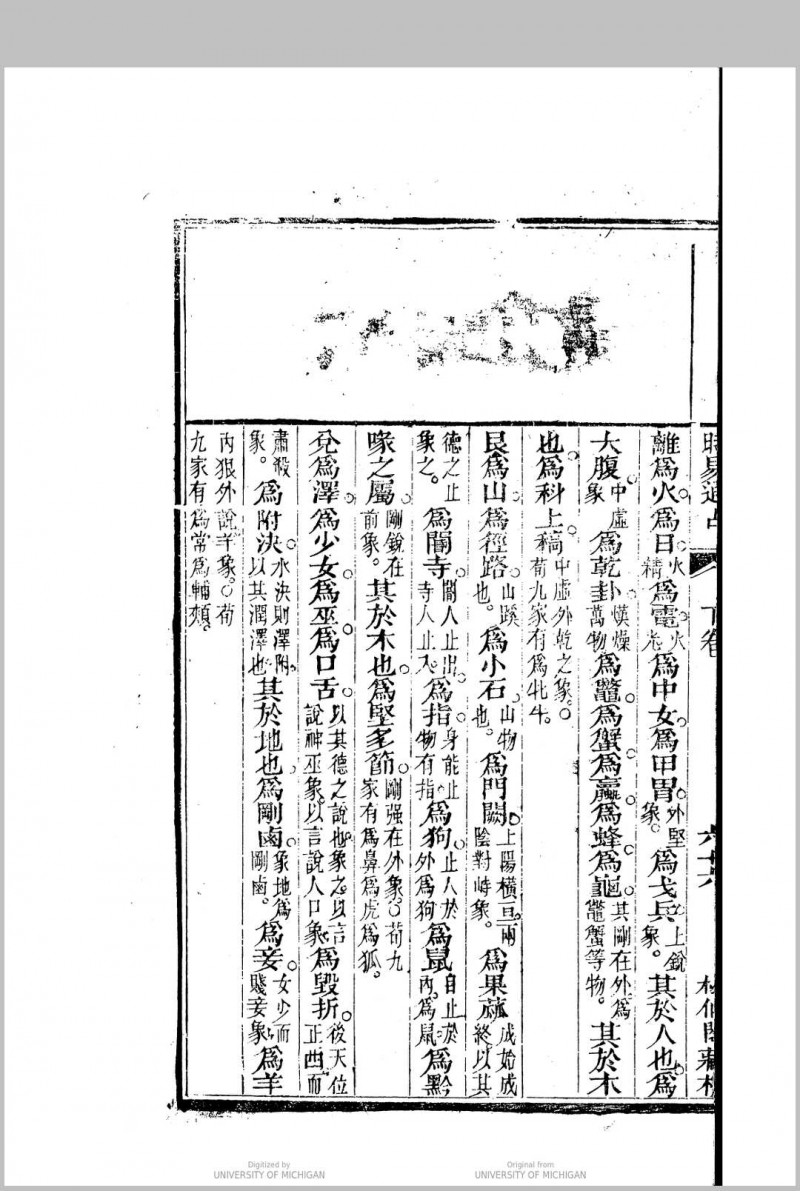 易通占 下卷
離為火。為日。火精為電。火光為中女。為甲冑。外堅象。為戈兵。上銳象。其於人也。為
大腹。中虛象為乾卦熯燥萬物為鼈。為蟹。為蠃。為蜂。為龜。其剛在外為鼈蟹等物。其於木
也。為科上槁。中虛外乾之象。○荀九家有為牝牛。
艮為山。為徑路。山蹊也。為小石。山物也。為門闕。上陽橫亘兩陰對峙象。為果蓏。成始成終以其
德之止象之。為閽寺。閽人止出寺人止入。為指。身能止物有指為狗。止人於外為狗為鼠自止於內為鼠為黔
喙之屬。剛銳在前象。其於木也。為堅多節。剛强在外象。○荀九家有為鼻為虎為狐。
兌為澤。為少女。為巫。為口舌。以其德之說也象之以言說神巫象以言說人口象為毀折。後天位正西而
肅殺象。為附決。水決則澤附以其潤澤也其於地也。為剛鹵。象地為剛鹵。為妾。女少而賤妾象為羊
內狠外說羊象。○荀九家有為常為輔頰。